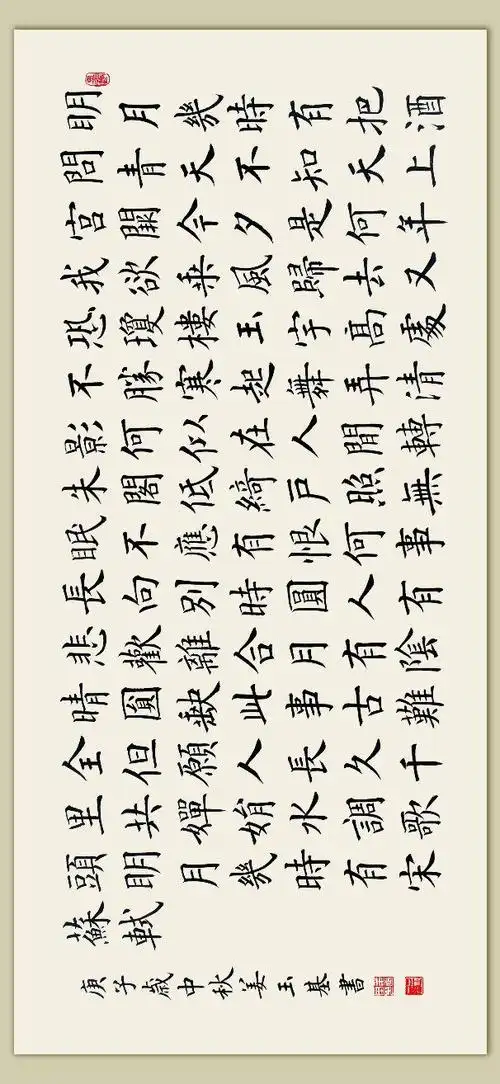 明月幾時有把酒
問青天不知天上
宮闕今夕是何年
我欲乘風歸去又
恐瓊樓玉宇高處
不勝寒起舞弄清
影何似在人間轉
朱閣低綺戶照無
眠不應有恨何事
長向別時圓人有
悲歡離合月有陰
晴圓缺此事古難
全但願人長久千
里共嬋娟水調歌
頭明月幾時有宋
蘇軾
庚子歲中秋姜玉基書